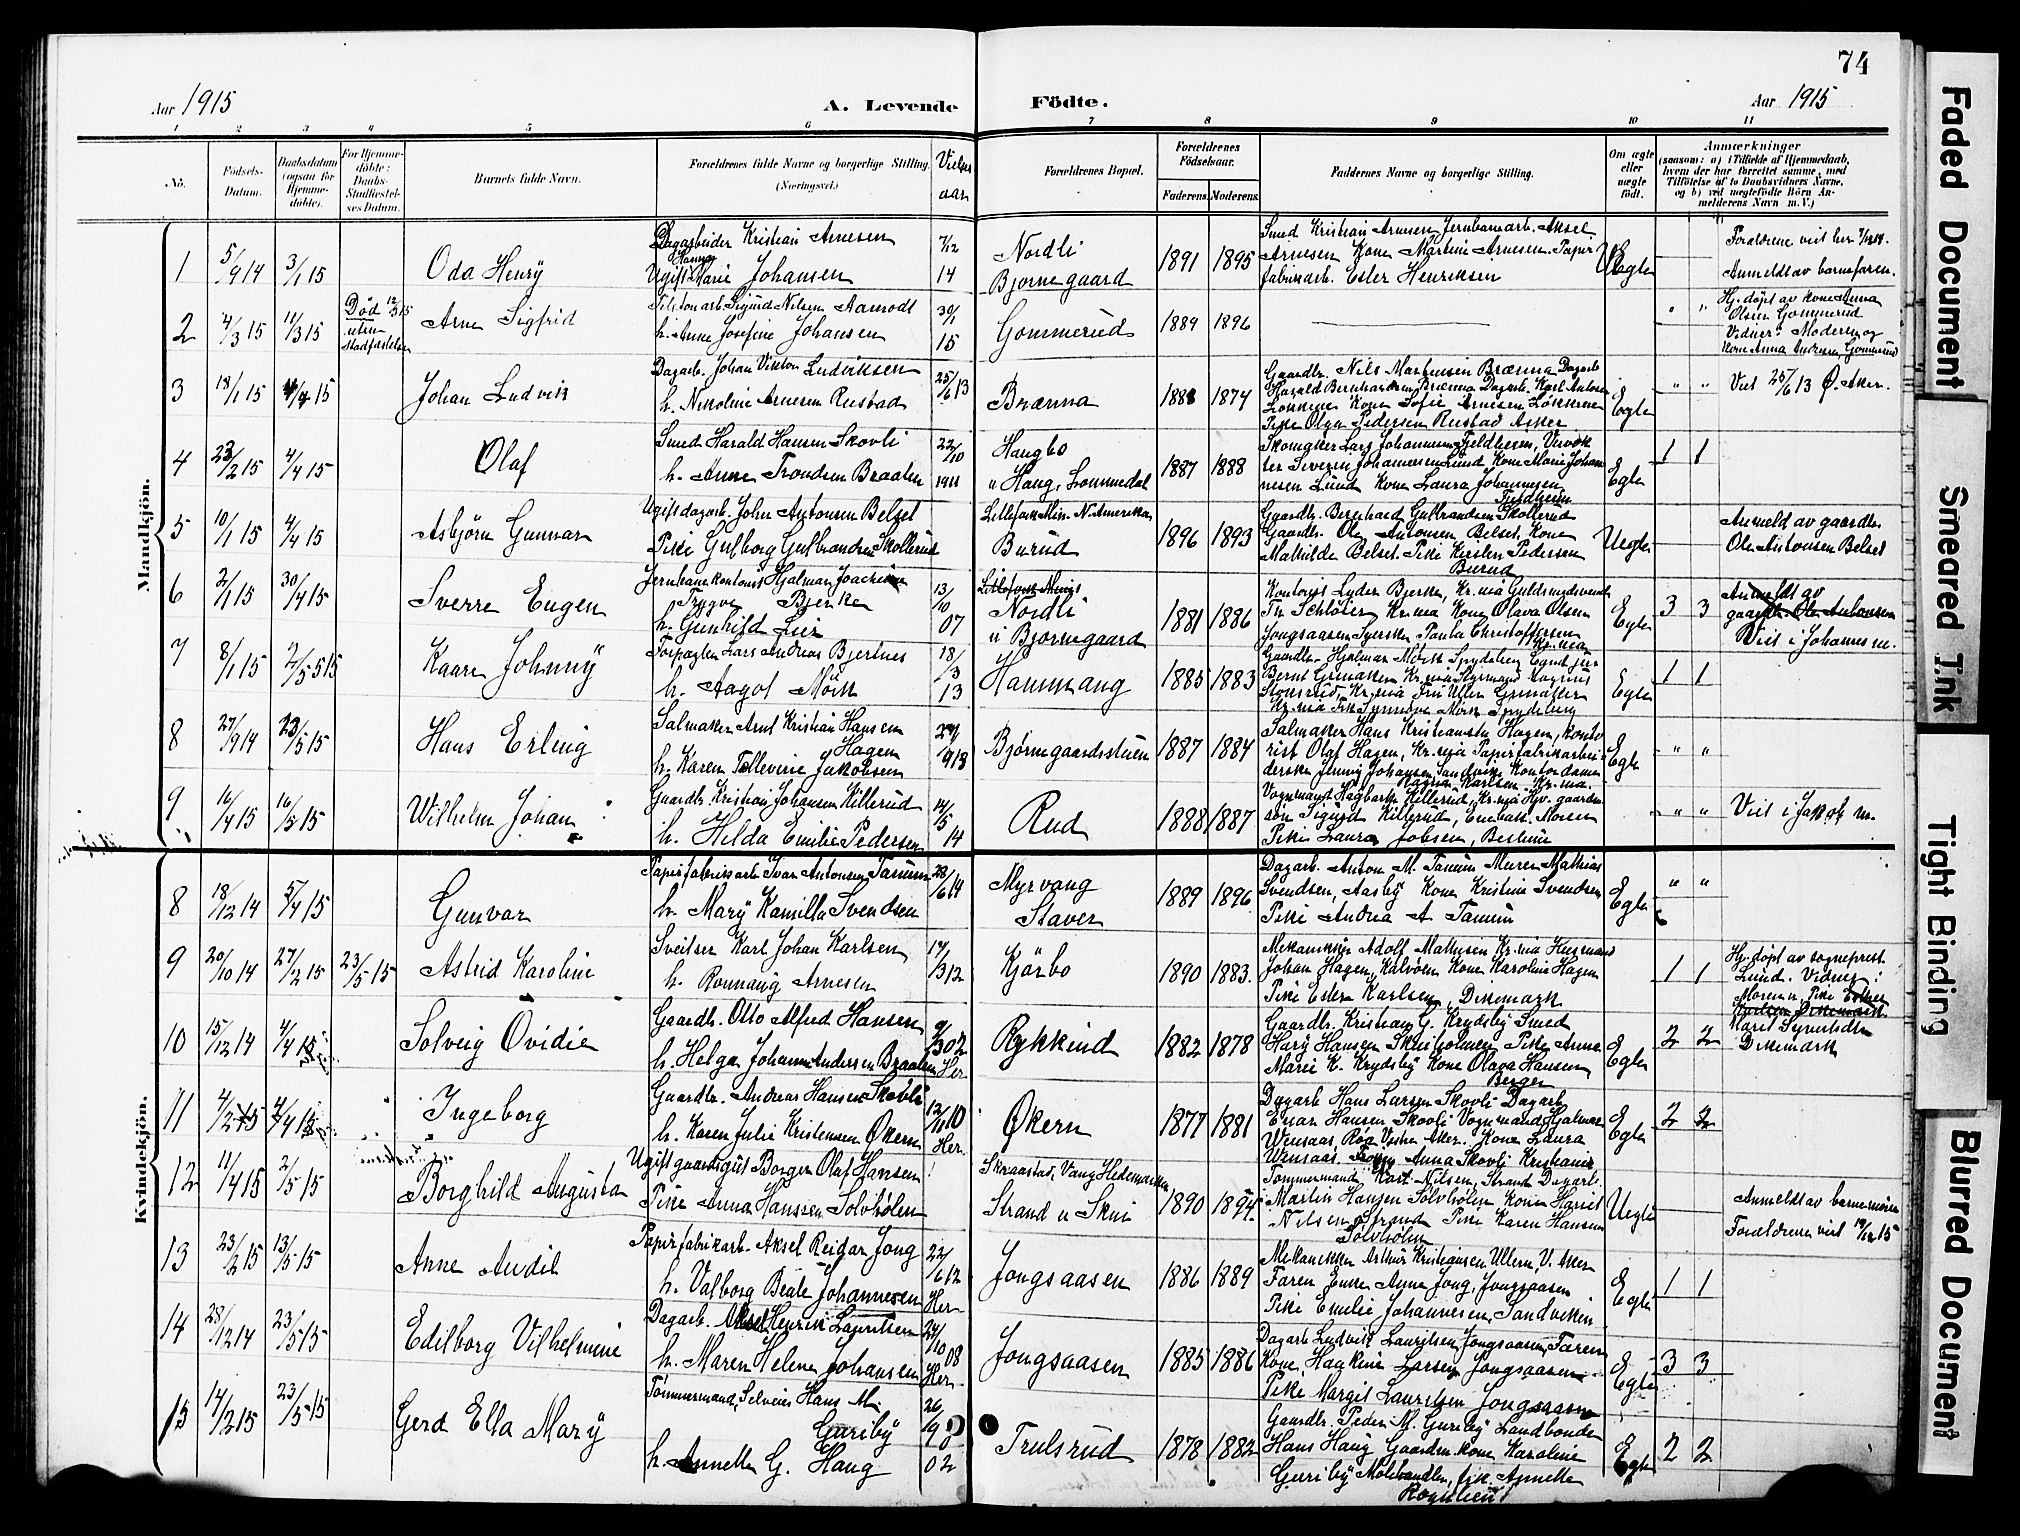 74
Aar 1915 A. Levende Födte. Aar 1915
1 2 3 4 5 6 7 8 9 10 11
No.
Fødsels-Datum.
Daabsdatum (ogsaa for Hjemmedöbte).
For Hjemmedöbte: Daabs-Stadfæstelses Datum.
Barnets fulde Navn.
Forældrenes fulde Navne og borgerlige Stilling. (Næringsvei.)
Vielses aar
Forældrenes Bopæl.
Forældrenes Födselsaar.
Faderens. Moderens.
Faddernes Navne og borgerlige Stilling.
Om ægte eller uægte født.
Anmærkninger
(saasom: a) i Tilfælde af Hjemmedaab,
hvem der har forrettet samme, med
Tilföielse af to Daabsvidners Navne,
og b) ved uægtefödte Börn An-
melderens Navn m. V.)
Mandkjön.
1 5/9 14 3/1 15 Oda Henry
Dagarbeider Kristian Arnesen
Ugift Hanna Marie Johansen
7/12 14
Nordli
Bjornegaard
1891 1895
Smed Kristian Arnesen Jernbanearb. Aksel
Arnesen Kone Martini Arnesen. Papir
fabrikarb. Ester Henriksen
Uegte
Foraldrene viet her 7/12 14.
Anmeldt av barnefaren.
2 4/3 15 11/3 15 Død 12/3 15 uten Stadfæstelse
Arne Sigfrid
Sigurd Nilsen Aamodt
h. Anna Josefine Johansen
30/1 15
Gommerud
1889 1896
Hj. døpt av kone Anna
Olsen Gommerud
Vidner: Moderen og
Kone Anna Andresen Gommerud
3 18/1 15 4/4 15 Johan Ludvik
Dagarb. Johan Viktor Ludviksen
h. Nikoline Arnesen Rustad
25/6 13
Brænna
1888 1874
Gaardbr. Nils Martinsen Brænna Dagarb
Harald Bernhardsen Brænna Dagarb. Karl Antonsen
Løkkene Kone Sofie Arnesen Løkkene
Pike Olga Pedersen Rustad Asker
Egte
" "
Viet 25/6 13 Ø. Aker.
4 23/2 15 4/4 15 Olaf
Smed Harald Hansen Skovli
h. Anna Trondsen Braaten
22/10 1911
Haugbo
u Haug, Lommedal
1887 1888
Skomaker Lars Johannesen Fjeldheim,
Severin Johannesen Lund Kone Marie Johan
nesen Lund Kone Laura Johannesen
Fjeldheim
Egte
1 1
5 10/1 15 4/4 15 Asbjörn Gunnar
Ugift dagarb. John Antonsen Belset
Pike Gulborg Gulbrandsen Skollerud
Littlefork Min. N. Amerika
Burud
1896 1893
Gaardbr. Bernhard Gulbrandsen Skollerud
Gaardbr. Ole Antonsen Belset. Kone
Mathilde Belset. Pike Kirsten Pedersen
Burud
Uegte
Anmeld av gaardbr.
Ole Antonsen Belset
6 2/1 15 30/4 15 Sverre Eugen
Jernbanekontorist Hjalmar Joachim
Trygve Bjerke
h. Gunhild Lier
13/10 07
Nordli
u Bjornegaard
1881 1886
Kontorist Lyder Bjerke, Kr.nia Guldsmedsvend
Th. Schlöser Kr.nia Kone Olava Olsen
Jongsaasen Syerske Paula Christoffersen
Kr.nia
Egte
3 3
Anmeldt av
gaardbr. Ole Antonsen
Viet i Johannes m.
7 8/1 15 2/5 15 Kaare Johnny
Forpagter Lars Andreas Bjertnes
h. Aagot Mörk
18/3 13
Hammang
1885 1883
Gaardbr. Hjalmar Mörk Spydeberg
Bernt Grimaker Kr.nia
Kr.nia
Egte
1 1
8 27/9 14 23/5 15 Hans Erling
Salmaker Arnt Kristian Hansen
Hagen
h. Karen Tollevine Jakobsen
Bjørnegaardsstuen
1887 1884
Salmaker Hans Kristiansen Hagen, kontor
rist Olaf Hagen, Kr.nia Papirfabrikarbei
derske Jenny Johansen Sandviken Kontordame
Ragna Karlsen Kr.nia.
Egte
" "
9 16/4 15 16/5 15 Wilhelm Johan
Gaardbr. Kristian Johansen Killerud
h. Hilda Emilie Pedersen
14/5 14
Rud
1888 1887
Vognmand Hagbart Killerud, Kr.nia Hjv. gaardm
søn Sigurd Killerud, Moren
Pike Laura Jobsen,
" "
Viet i Jakob m.
Kvindekjön.
8 18/12 14 5/4 15 Gunvar
Papirfabriksarb Ivar Antonsen Tanum
h. Mary Kamilla Svendsen
28/6 14
Myrvang
Staver
1889 1896
Dagarb. Anton M. Tanum Murer Mathias
Svendsen, Aasby Kone Kristine Svendsen
Pike Andrea A Tanum
Egte
" "
9 20/10 14 27/2 15 23/5 15 Astrid Karoline
Sveitser Karl Johan Karlsen
h. Ronnaug Arnesen
17/3 12
Kjörbo
1890 1883.
Mekaniker Adolf Mathisen Kr.nia Husmand
Johan Hagen, Kalvøen Kone Karoline Hagen
Pike Ester Karlsen, Dikemark
1 1
Hj. døpt av sogneprest
Lund. Vidner:
Moren u. Pike Esther
Karlsen Dikemark
Marit
Dikemark
10 15/12 14 4/4 15 Solveig Ovidie
Gaardbr. Otto Alfred Hansen
h. Helga Johanne Andersen Braaten
9/3 02 Her
Rykkind
1882 1878
Gaardbr. Kristian G. Krydsby Smed
Harry Hansen Skuiholmen Pike Anna
Marie K. Krydsby Kone Olava Hansen
Berger
Egte
2 2
11 4/2 15 4/4 15 Ingeborg
Gaardbr. Andreas Hansen Skovli
h. Karen Julie Kristensen Økern
12/11 10 Her.
Økern
1877 1881
Dagarb Hans Larsen Skovli Dagarb
Einar Hansen Skovli Vognmand Hjalmar
Wensaas, Røa Vestre Aker. Kone Laura
Wensaas. Anna Skovli Kristiania
Egte
2 2
12 11/4 15 2/5 15 Borghild Augusta
Ugift gaardsgut Borger Olaf Hansen
Pike Anna Hanssen Solvhølen
Skraastad, Vang Hedemarken
Strand u Skui
1890 1894.
Tommermand Karl Nilsen, Strand Dagarb.
Martin Hansen Sölvhölen Kone Hanst
Nilsen Strand Pike Karen Hansen
Sölvhölen
Uegte
Anmeldt av barnemoren
Foreldrene viet 19/12 15
13 23/2 15 13/5 15 Anne Audil
Papirfabrikarb. Aksel Reidar Jong
h. Valborg Beate Johannesen
22/6 12 Her
Jongsaasen
1886 1889
Mekaniker Arthur Kristiansen Ullern, V. Aker
Faren Enke Anne Jong, Jongsaasen
Pike Emelie Johannesen, Sandviken
Egte
1 1
14 28/12 14 23/5 15 Edilborg Vilhelmine
Dagarb. Aksel Henrik Lauritsen
h. Maren Helene Johansen
24/10 08 Her
Jongsaasen
1885 1886
Dagarb Ludvik Lauritsen Jongsaasen, Faren
Kone Hagkine Larsen Jongsaasen
Pike Margit Lauritsen Jongsaasen
Egte
3 3
15 14/2 15 23/5 15 Gerd Ella Mary
Tömmermand, Selveier Hans M.
Guriby
h. Annette G. Haug
Trulsrud
1878 1882
Gaardbr. Peder M. Guriby Landhandl
Hans Haug Gaardm. kone Karoline
Guriby
Egte
2 2
Faded Document
Smeared Ink
Tight Binding
Blurred Document